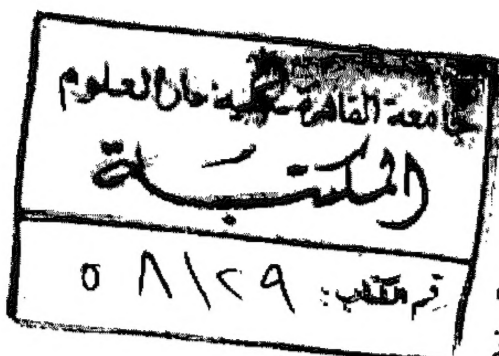 جامعة القاهرة - كلية دار العلوم
المكتبة
رقم الكتاب: ٥٨١٢٩